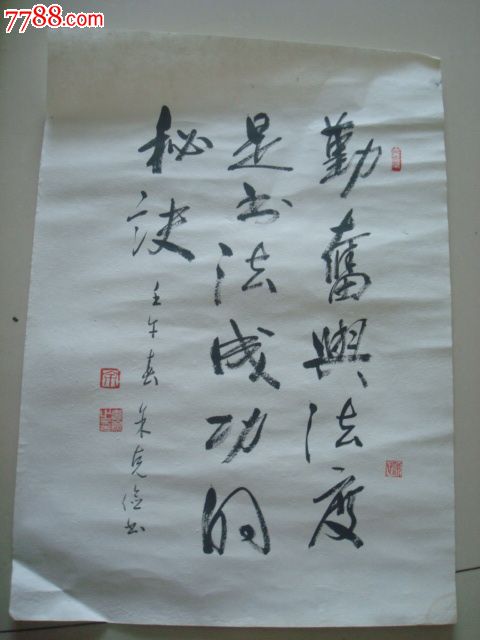 7788.com
勤奮與法度
是书法成功的
秘诀
壬午春 朱克俭书